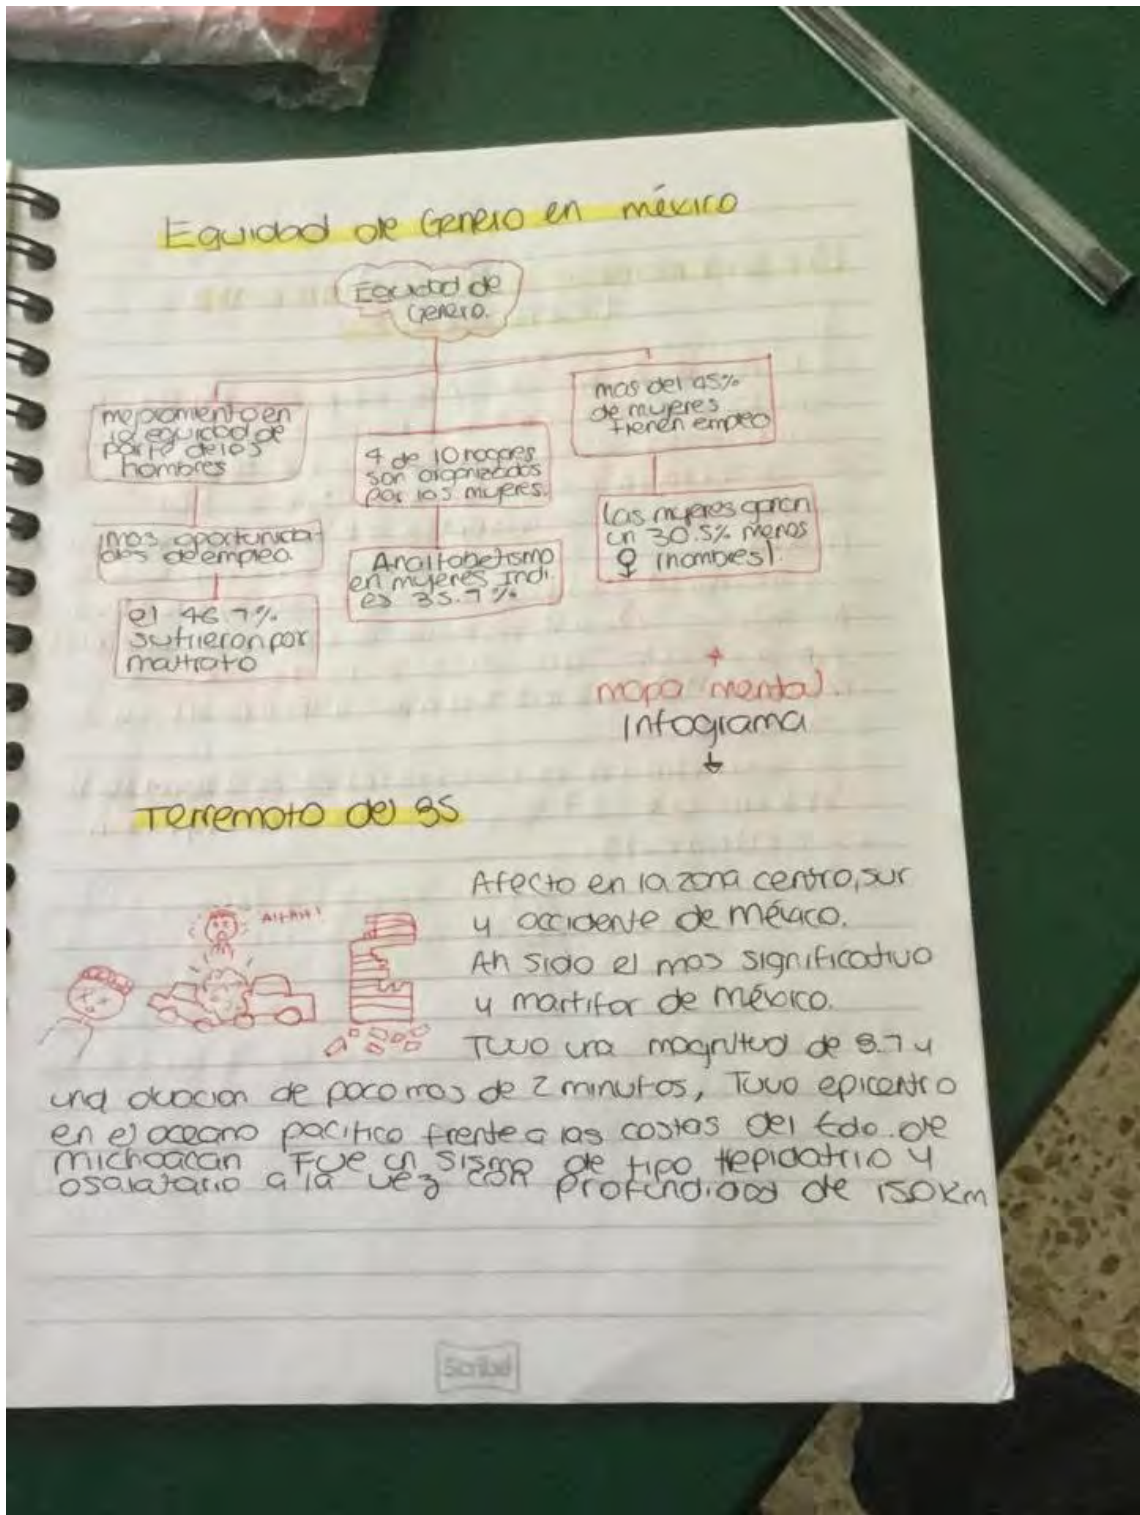 Equidad de Genero en méxico
Equidad de
Genero.
mejoramento en
la equidad de
parte de los
hombres
mas oportunida-
des de empleo.
el 46.7%
sufrieron por
maltrato
4 de 10 hogares
son organizados
por las mujeres.
Analfabetismo
en mujeres Indi.
es 35.7%
mas del 45%
de mujeres
tienen empleo
Las mujeres ganan
un 30.5% menos
♀ (hombres)
mapa mental.
Infograma
Terremoto del 85
AHHH!
Afecto en la zona centro, sur
y occidente de méxico.
Ah sido el mas significativo
y martifor de méxico.
Tuvo una magnitud de 8.7 y
una duracion de poco mas de 2 minutos, Tuvo epicentro
en el oceano pacifico frente a las costas del Edo. de
michoacan Fue un sismo de tipo tepidatrio y
osalatario a la vez con profundidad de 150km
Scribe